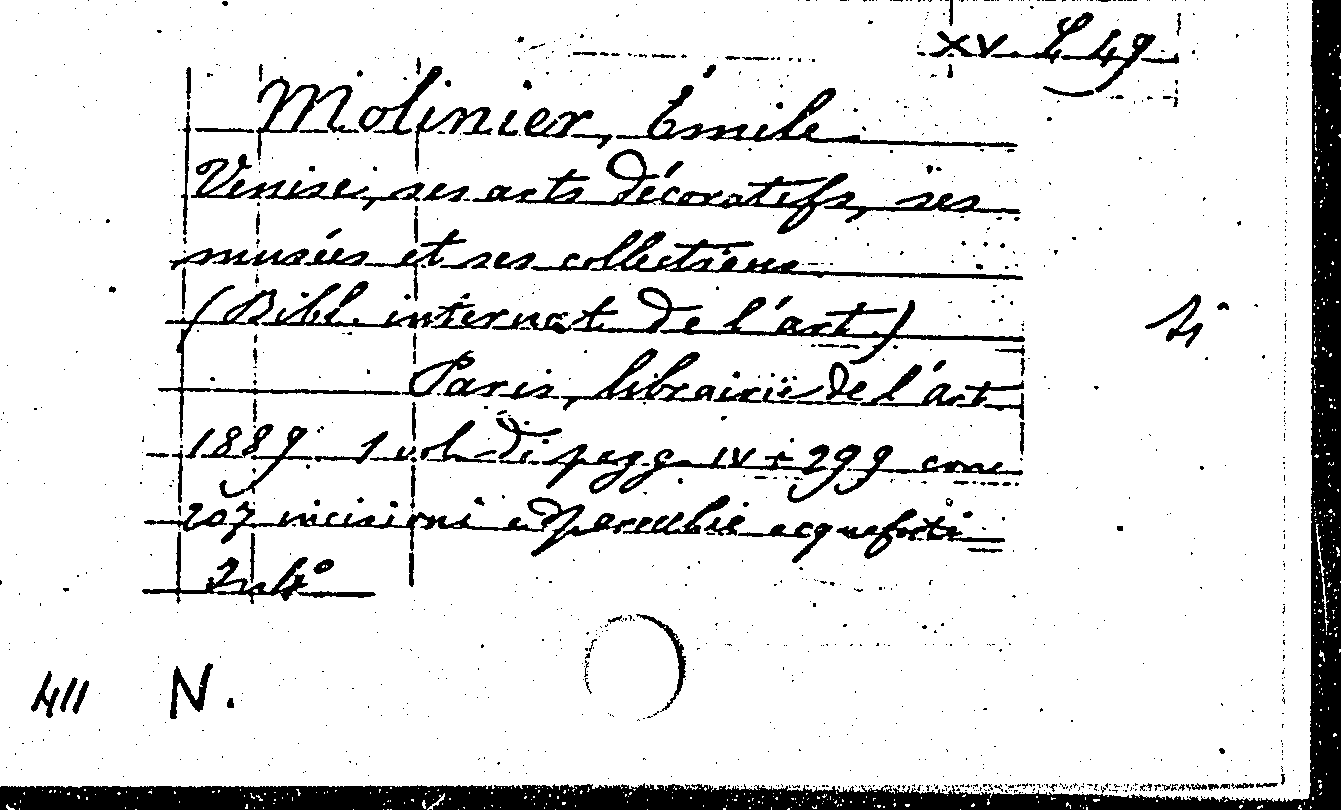 XV. L 49
Molinier, Émile.
Venise, ses arts décoratifs, ses
musées et ses collections.
(Bibl. internat. de l'art.)
Paris, librairie de l'art
1889 1 vol. di pagg. IV + 299 con
207 incisioni e parecchie acqueforti
In 4°
411 N.